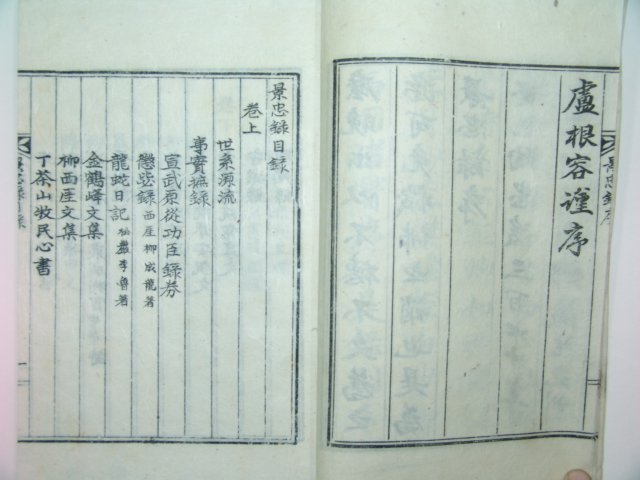 盧根容謹序
景忠錄序
景忠錄目錄
卷上
世系源流
事實摭錄
宣武原從功臣錄券
懲毖錄 西厓柳成龍著
龍蛇日記 松巖李魯著
金鶴峰文集
柳西厓文集
丁茶山牧民心書
景忠錄目錄